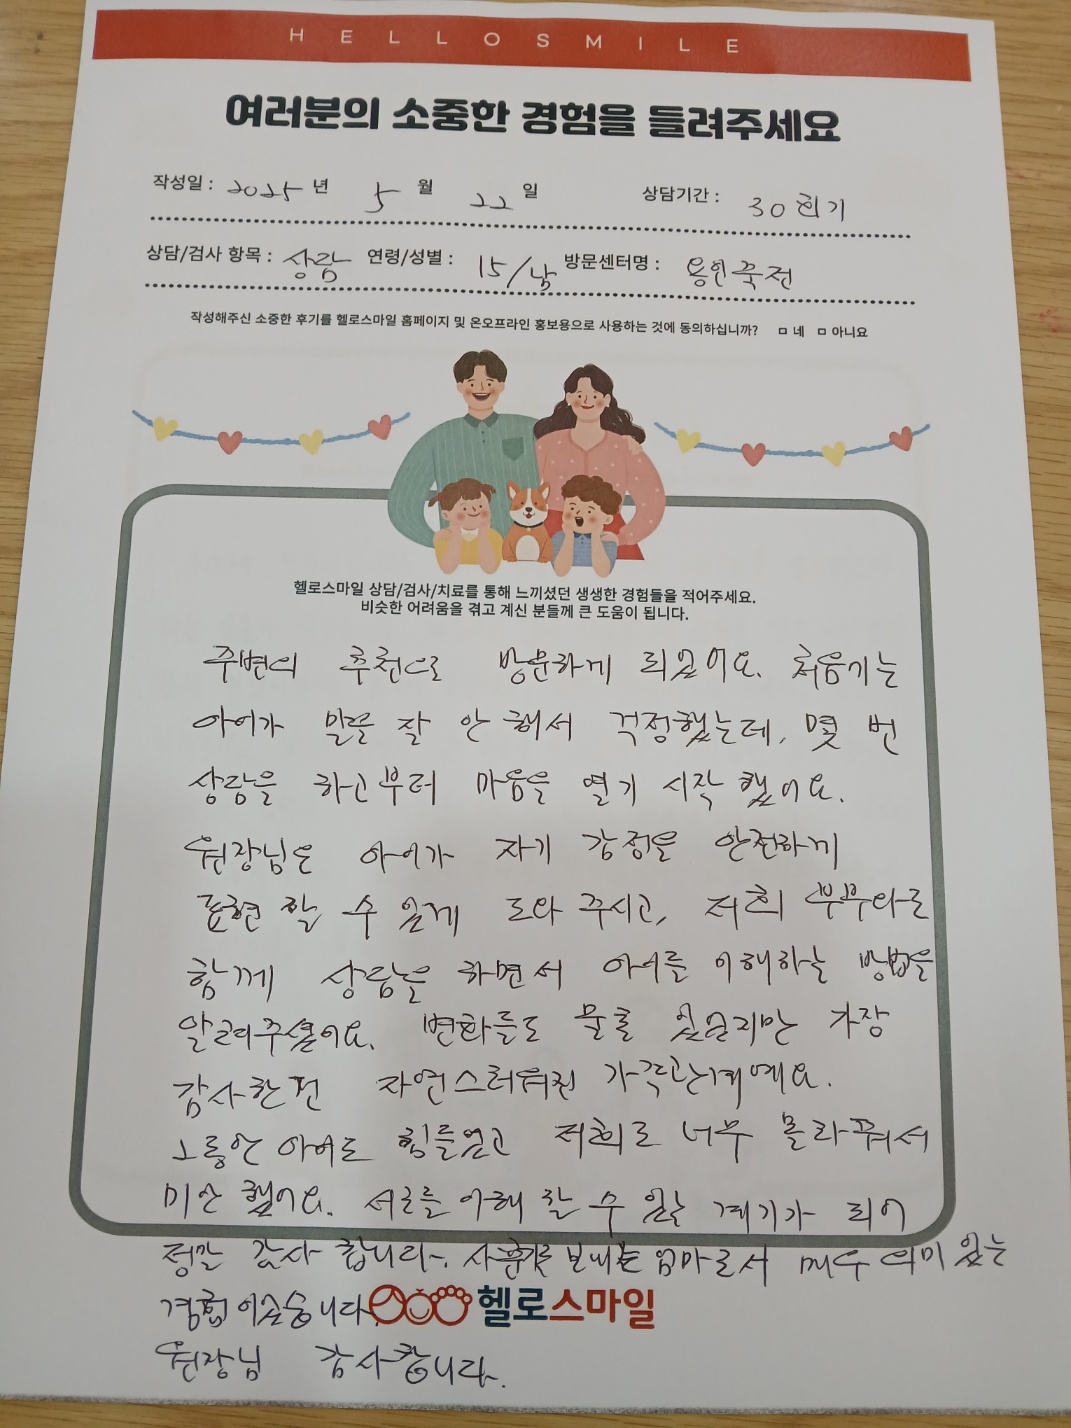 HELLOSMILE
여러분의 소중한 경험을 들려주세요
작성일 : 2025 년 5 월 22 일 상담기간 : 30회기
상담/검사 항목 : 상담 연령/성별 : 15/남 방문센터명 : 용인죽전
작성해주신 소중한 후기를 헬로스마일 홈페이지 및 온오프라인 홍보용으로 사용하는 것에 동의하십니까? ㅁ 네 ㅁ 아니요
헬로스마일 상담/검사/치료를 통해 느끼셨던 생생한 경험들을 적어주세요.
비슷한 어려움을 겪고 계신 분들께 큰 도움이 됩니다.
주변의 추천으로 방문하게 되었어요. 처음기는
아이가 말을 잘 안 해서 걱정했는데, 몇 번
상담을 하고부터 마음을 열기 시작 했어요.
원장님은 아이가 자기 감정을 안전하게
표현 할 수 있게 도와 주시고, 저희 부부와도
함께 상담을 하면서 아이를 이해하는 방법을
알려주셨어요. 변화들도 물론 있었지만 가장
감사한건 자연스러워진 가족관계예요.
그동안 아이도 힘들었고 저희도 너무 몰라줘서
미안 했어요. 서로를 이해 할 수 있는 계기가 되어
정말 감사 합니다. 사춘기를 보내는 엄마로서 매우 의미 있는
경험이었습니다.
헬로스마일
원장님 감사합니다.